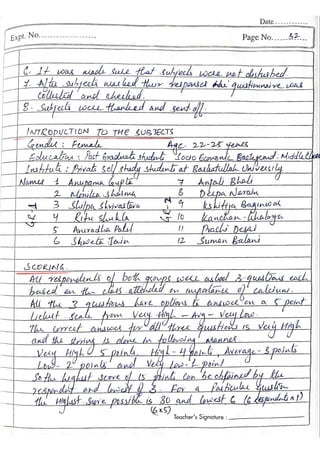 Date............
Expt. No.................... Page No. 57
6. It was made sure that subjects were not disturbed
7. After subjects marked their responses the questionnaire was
collected and checked.
8. Subjects were thanked and sent off.
INTRODUCTION TO THE SUBJECTS
Gender: Female Age 22-25 years
Education: Post Graduate students Socio Economic Background: Middle Class
Institute: Private self study students at Barkatullah University
Names 1 Anupama Gupta 7 Anjali Bhali
2 Sharma 8 Deepa Narain
3 Shilpa Shrivastava 9 Kshitija
4 Ritu Shukla 10 Kanchan
5 Anuradha Patel 11 Prachi Desai
6 Shweta Jain 12 Suman Balani
GR-1 GR-2
SCORING.
All respondents of both groups were asked 3 questions each
based on the class attended on importance of calcium.
All the 3 questions have options to answer on a 5 point
likert scale from Very High - Avg - Very Low.
The correct answer for all three questions is Very High
and the scoring is done in following manner
Very High - 5 points, High - 4 points, Average - 3 points
Low - 2 points and Very Low - 1 point
So the highest score of 15 points can be obtained by the
respondent and lowest of 3. For a Particular question
the highest score possible is 30 and lowest 6 (6 respondents x 1)
(6x5)
Teacher's Signature :